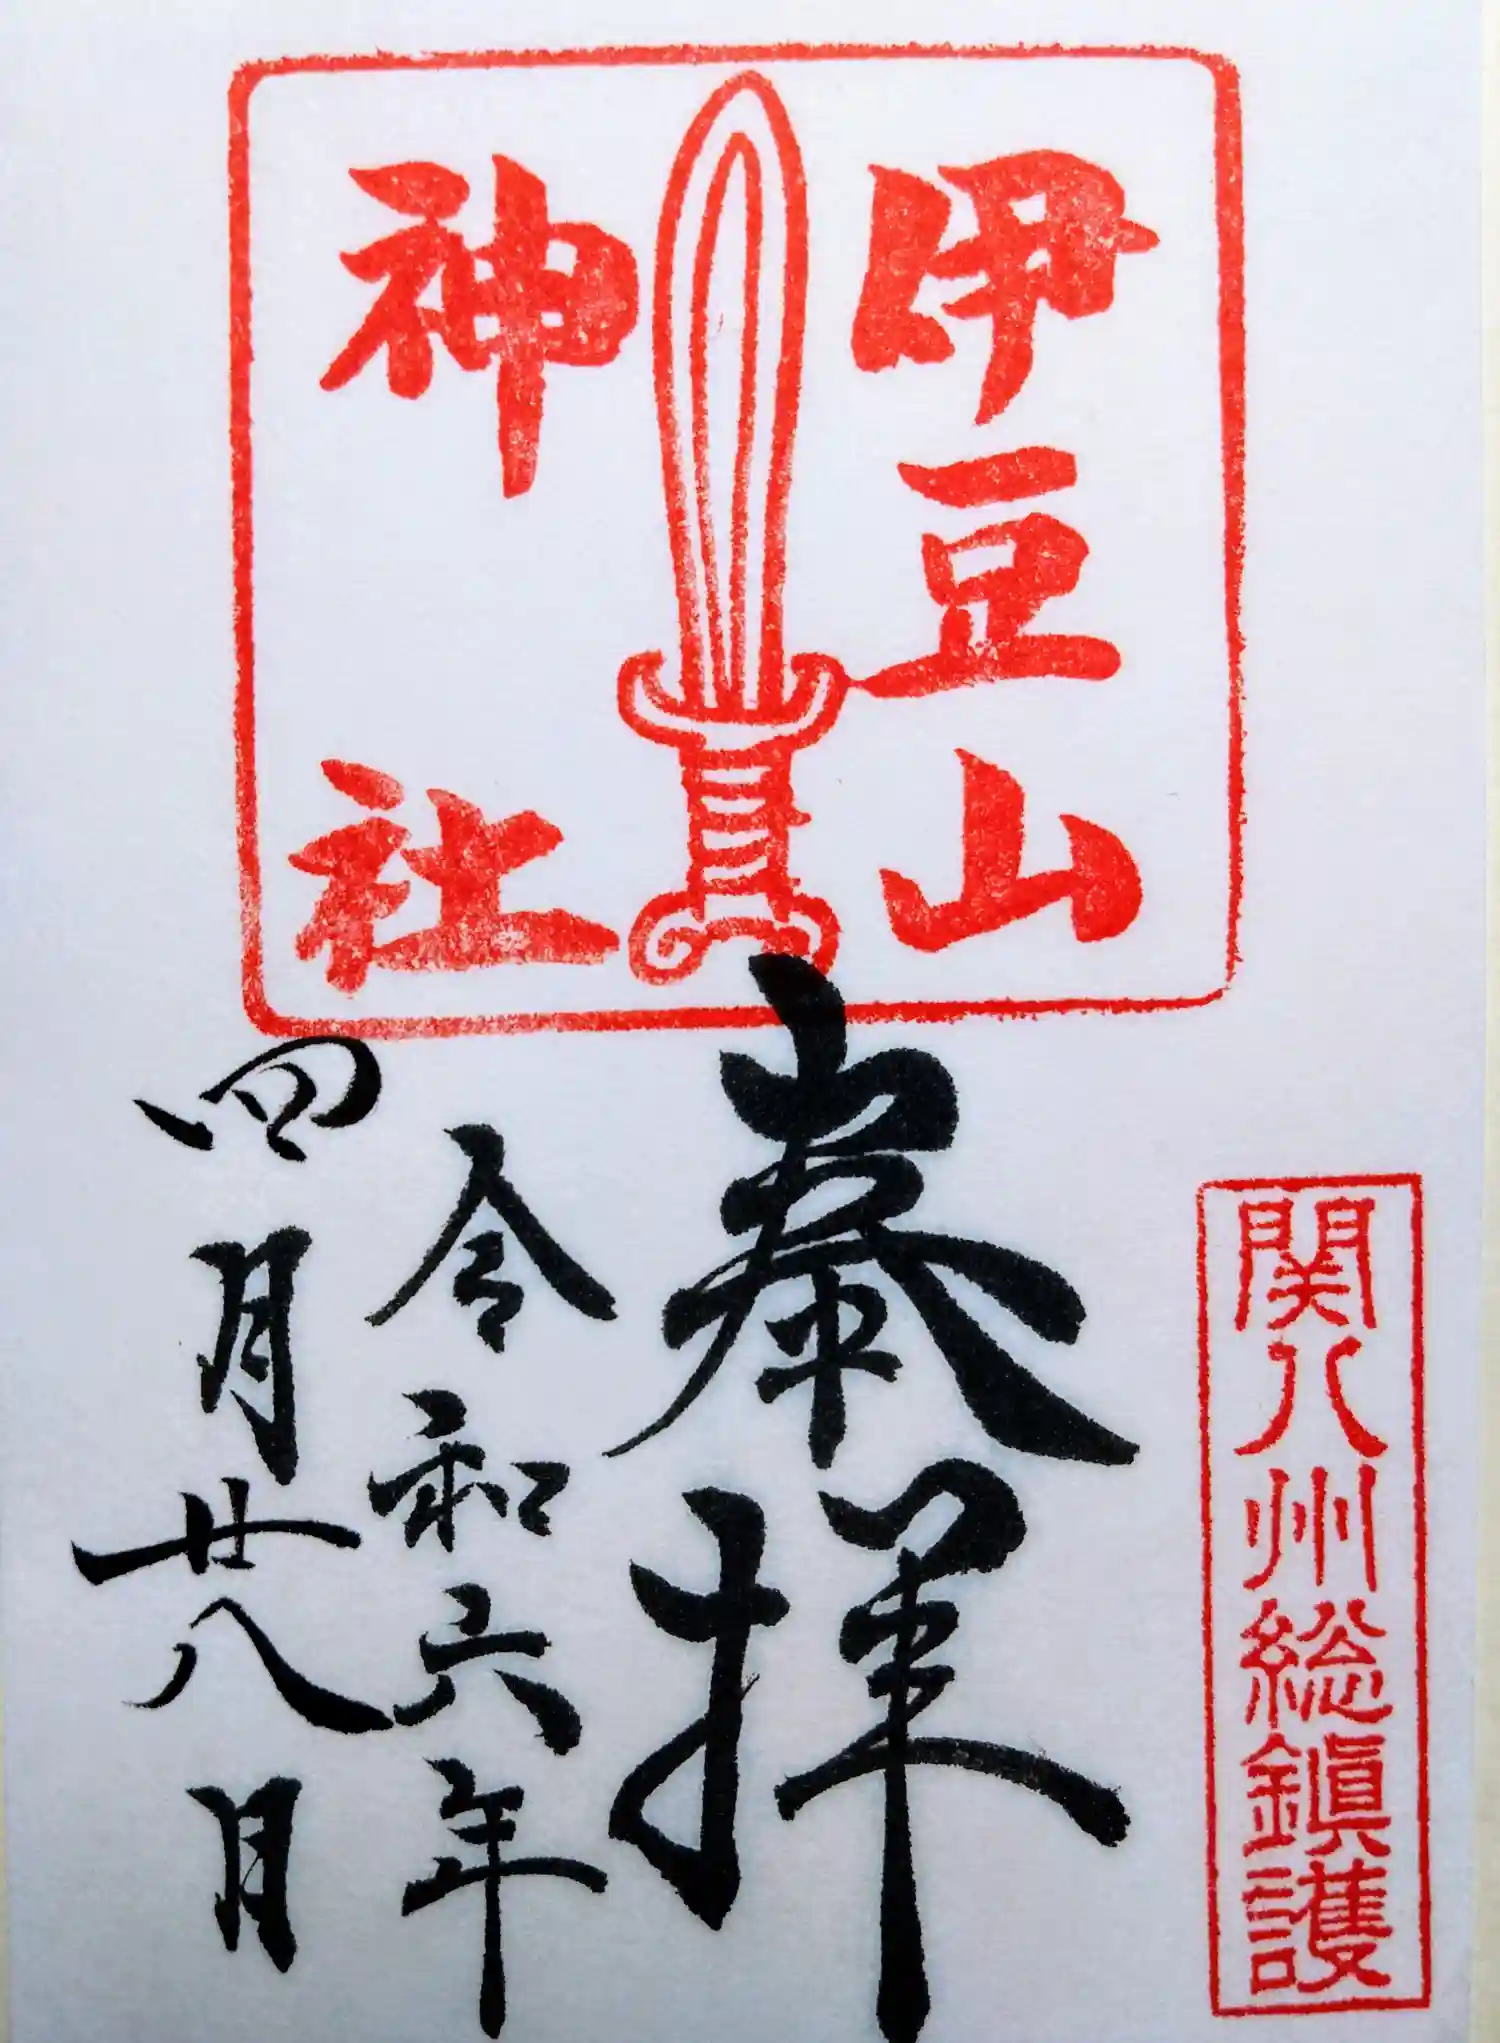 伊豆山
神社
関八州総鎮護
奉拝
令和六年
四月廿八月